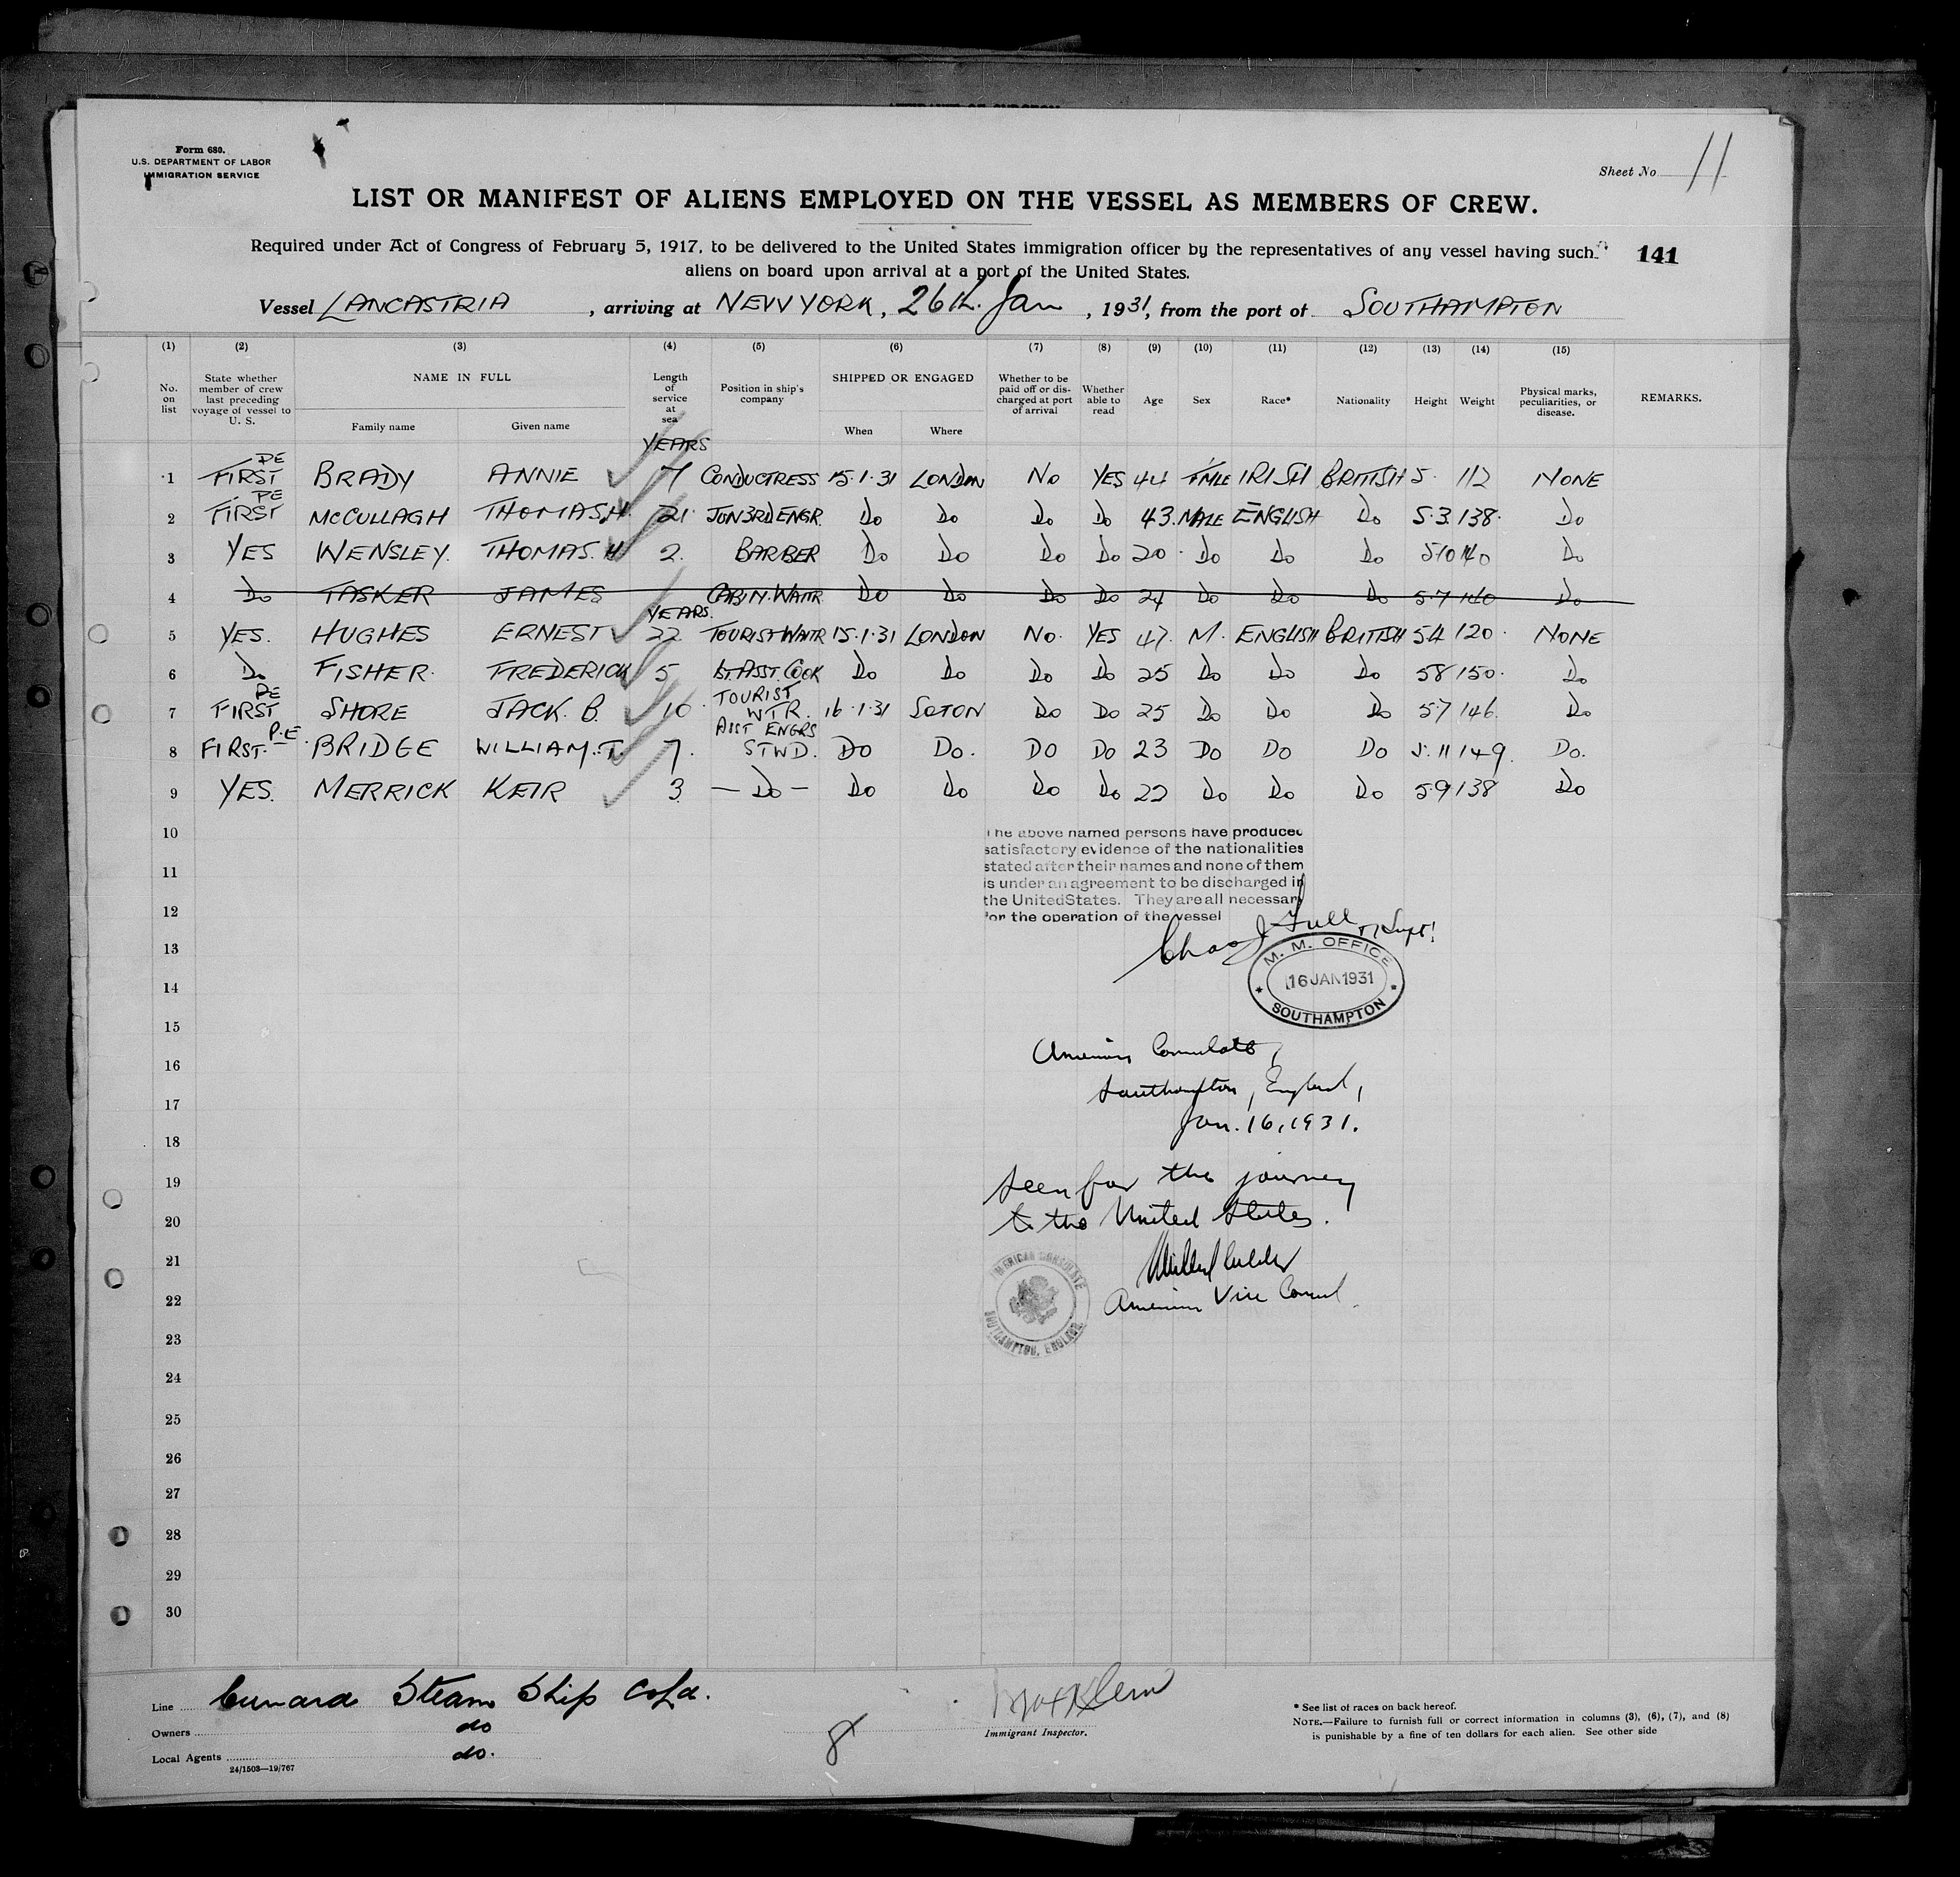 Form 680.
U.S. DEPARTMENT OF LABOR
IMMIGRATION SERVICE
Sheet No 11
LIST OR MANIFEST OF ALIENS EMPLOYED ON THE VESSEL AS MEMBERS OF CREW.
Required under Act of Congress of February 5, 1917, to be delivered to the United States immigration officer by the representatives of any vessel having such
aliens on board upon arrival at a port of the United States.
141
Vessel LANCASTRIA, arriving at NEW YORK, 26th. Jan, 1931, from the port of SOUTHAMPTON
(1) (2) (3) (4) (5) (6) (7) (8) (9) (10) (11) (12) (13) (14) (15)
No. on list State whether member of crew last preceding voyage of vessel to U. S. NAME IN FULL Family name Given name Length of service at sea Position in ship's company SHIPPED OR ENGAGED When Where Whether to be paid off or discharged at port of arrival Whether able to read Age Sex Race* Nationality Height Weight Physical marks, peculiarities, or disease. REMARKS.
YEARS
1 FIRST PE BRADY ANNIE 7 CONDUCTRESS 15.1.31 LONDON NO YES 44 FMLE IRISH BRITISH 5. 112 NONE
2 FIRST PE McCULLAGH THOMAS.H 21. JUN 3RD ENGR. Do Do Do Do 43. MALE ENGLISH Do 5.3 138. Do
3 YES WENSLEY. THOMAS.H 2. BARBER Do Do Do Do 20. Do Do Do 5.10 140 Do
4 Do TASKER JAMES CABIN.WAITR Do Do Do Do 24 Do Do Do 5.7 140 Do
YEARS.
5 YES. HUGHES ERNEST 22 TOURIST WAITR 15.1.31 LONDON NO. YES 47. M. ENGLISH BRITISH 5.4 120. NONE
6 Do FISHER. FREDERICK 5 ASST. COOK Do Do Do Do 25 Do Do Do 5.8 150. Do
7 FIRST PE SHORE JACK. B. 10 TOURIST WTR. 16.1.31 SOTON Do Do 25 Do Do Do 5.7 146. Do
8 FIRST. P.E. BRIDGE WILLIAM.T. 7. ASST ENGRS STWD. DO DO. DO DO 23 DO DO DO 5.11 149. DO.
9 YES. MERRICK KEIR 3 — Do — Do Do Do Do 22 Do Do Do 5.9 138 Do
10
The above named persons have produced
satisfactory evidence of the nationalities
11
stated after their names and none of them
is under an agreement to be discharged in
the United States. They are all necessary
12
for the operation of the vessel
13
Supt.
M. M. OFFICE
14
16 JAN 1931
SOUTHAMPTON
15
16
American Consulate,
17
Southampton, England,
Jan. 16, 1931.
18
19
Seen for the journey
20
to the United States.
21
AMERICAN CONSULATE
22
American Vice Consul.
23
SOUTHAMPTON, ENGLAND.
24
25
26
27
28
29
30
Line Cunard Steam Ship Co Ld.
Owners do
Local Agents do.
24/1503—19/767
8
Immigrant Inspector.
* See list of races on back hereof.
NOTE.—Failure to furnish full or correct information in columns (3), (6), (7), and (8)
is punishable by a fine of ten dollars for each alien. See other side